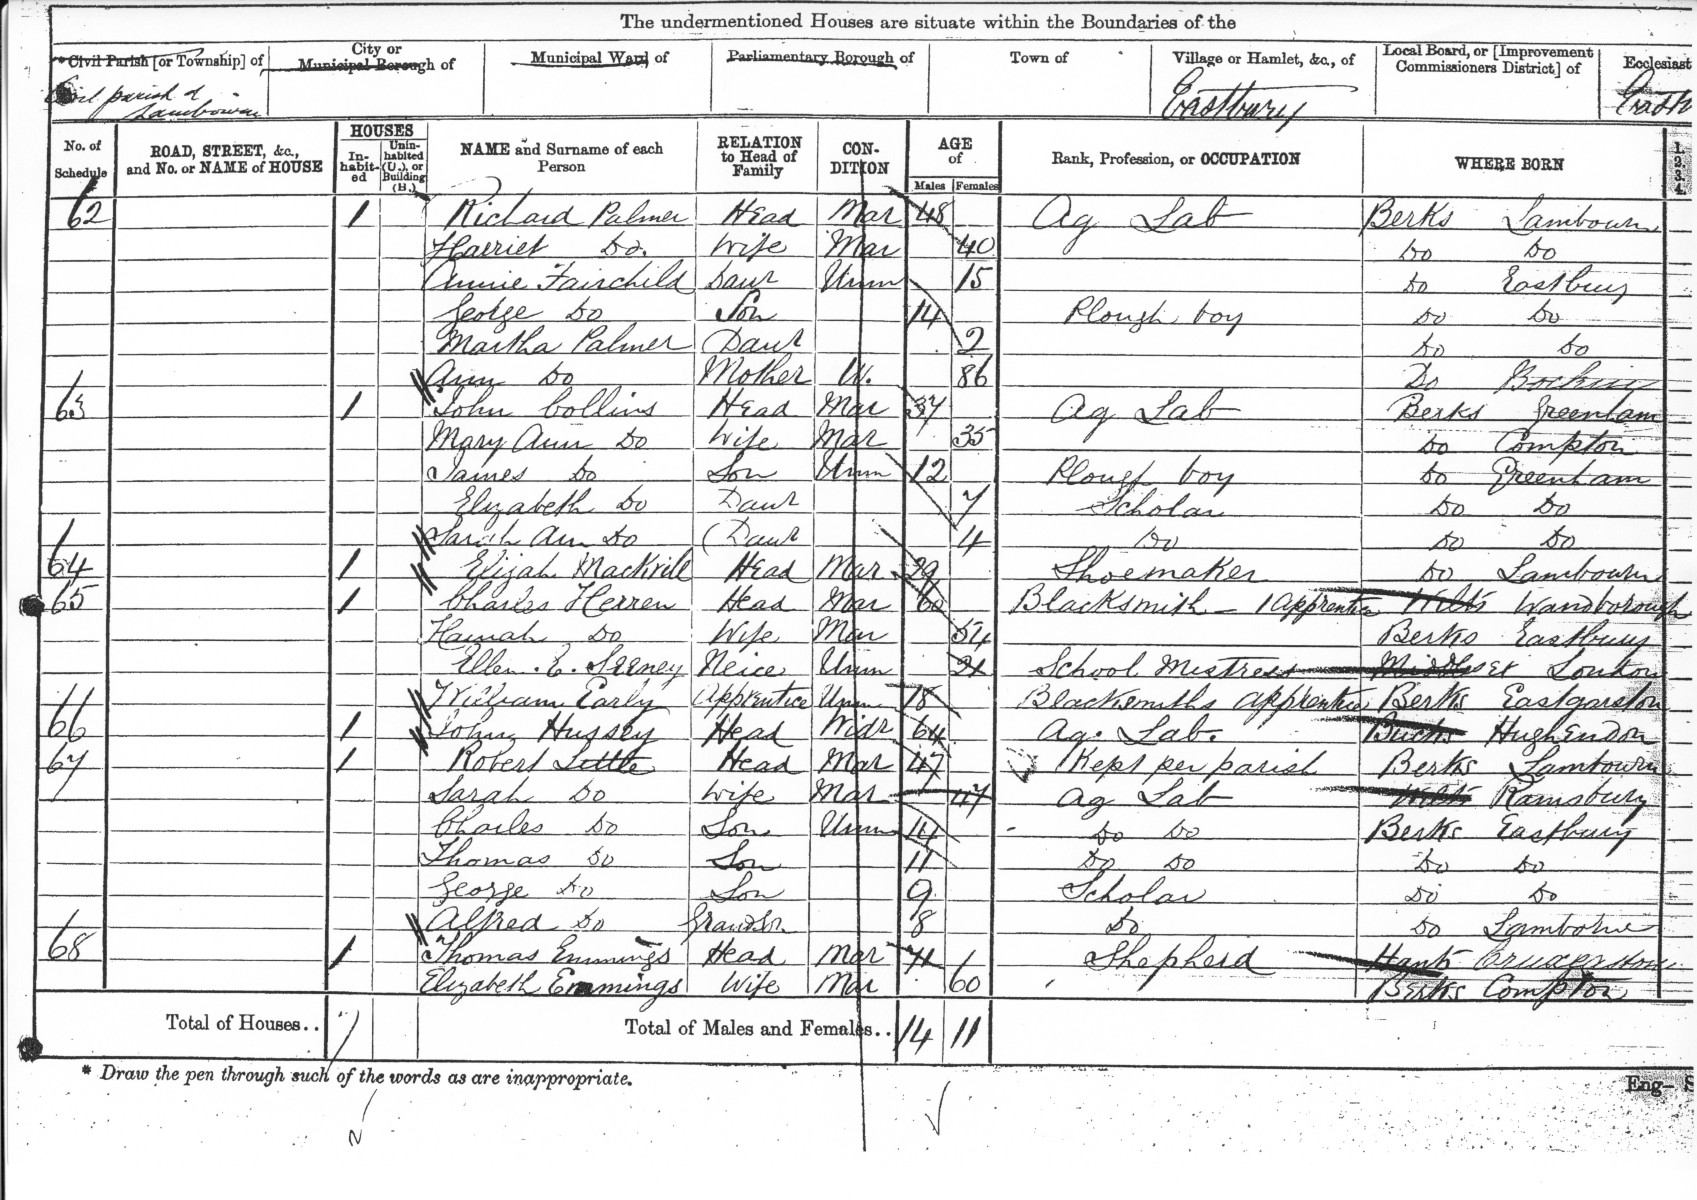 The undermentioned Houses are situate within the Boundaries of the
* Civil Parish [or Township] of
City or Municipal Borough of
Municipal Ward of
Parliamentary Borough of
Town of
Village or Hamlet, &c., of
Local Board, or [Improvement Commissioners District] of
Ecclesiast
Civil parish of Lambourn
Eastbury
East
No. of Schedule
ROAD, STREET, &c., and No. or NAME of HOUSE
HOUSES
In-habit-ed
Unin-habited (U.), or Building (B.)
NAME and Surname of each Person
RELATION to Head of Family
CON-DITION
AGE of
Males
Females
Rank, Profession, or OCCUPATION
WHERE BORN
62 1 Richard Palmer Head Mar 48 Ag Lab Berks Lambourn
Harriet Do. Wife Mar 40 Do Do
Annie Fairchild Daur Unm 15 Do Eastbury
George Do Son 14 Plough boy Do Do
Martha Palmer Daur 2 Do Do
Ann Do Mother W. 86 Do
63 1 John Collins Head Mar 37 Ag Lab Berks Greenham
Mary Ann Do Wife Mar 35 Do Compton
James Do Son Unm 12 Plough boy Do Greenham
Elizabeth Do Daur 7 Scholar Do Do
Sarah Ann Do Daur 4 Do Do Do
64 1 Elijah Mackrill Head Mar 29 Shoemaker Do Lambourn
65 1 Charles Herren Head Mar 60 Blacksmith - 1 apprentice Wilts Wandborough
Hannah Do Wife Mar 54 Berks Eastbury
Ellen. E. Seeney Neice Unm 21 School Mistress Middlesex London
William Early Apprentice Unm 18 Blacksmiths apprentice Berks Eastgarston
66 1 John Hussey Head Widr 64 Ag. Lab. Bucks Hughendon
67 1 Robert Little Head Mar 47 Kept per parish Berks Lambourn
Sarah Do Wife Mar 47 Ag Lab Wilts Ramsbury
Charles Do Son Unm 14 Do Do Berks Eastbury
Thomas Do Son 11 Do Do Do Do
George Do Son 9 Scholar Do Do
Alfred Do Grandson 8 Do Do Lamborne
68 1 Thomas Emmings Head Mar 71 Shepherd Hants
Elizabeth Emmings Wife Mar 60 Berks Compton
Total of Houses.. 7
Total of Males and Females.. 14 11
* Draw the pen through such of the words as are inappropriate.
Eng- S